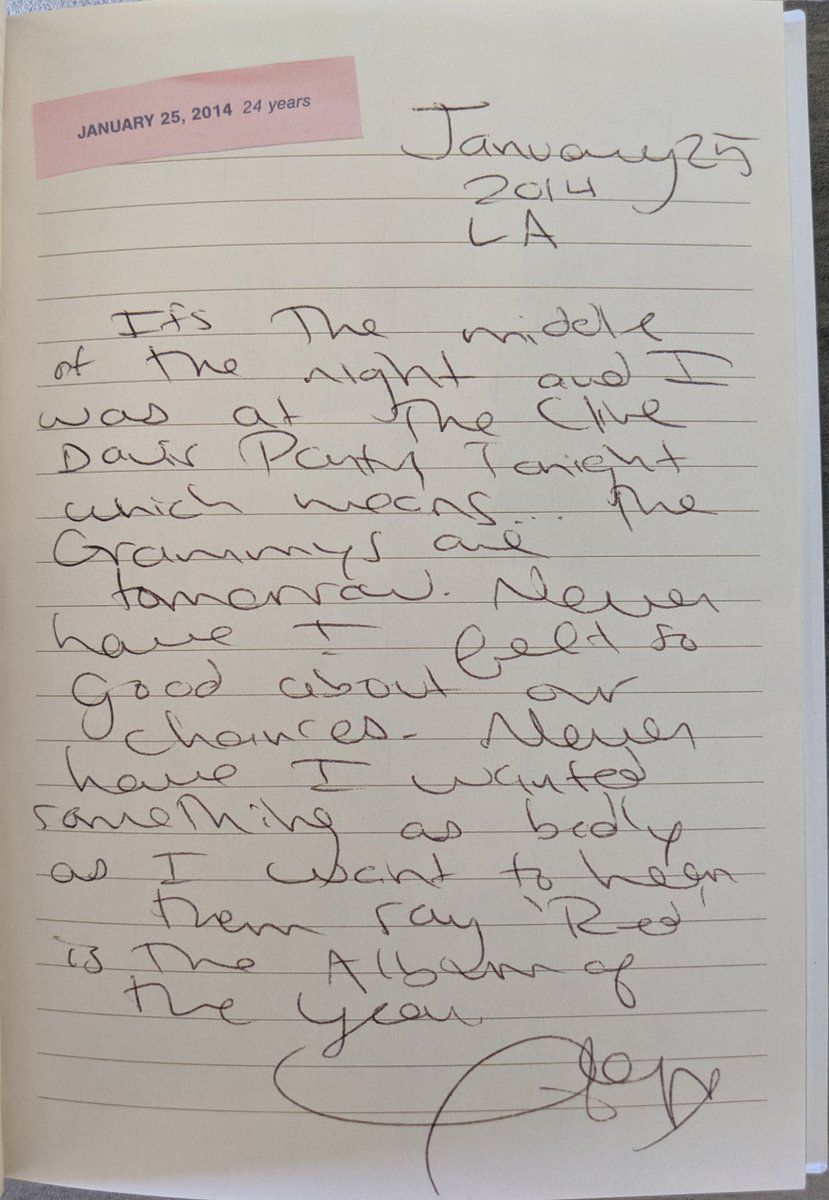 JANUARY 25, 2014 24 years
January 25
2014
LA
It's The middle
of the night and I
was at The Clive
Davis Party Tonight
which means... The
Grammys are
tomorrow. Never
have I felt so
good about our
chances. Never
have I wanted
something as badly
as I want to hear
them say 'Red'
is The Album of
the year.